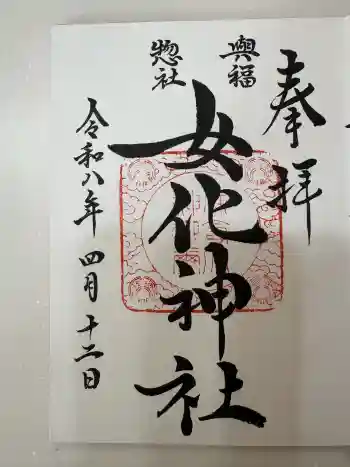 奉拝
興福
惣社
女化神社
令和八年 四月 十二日